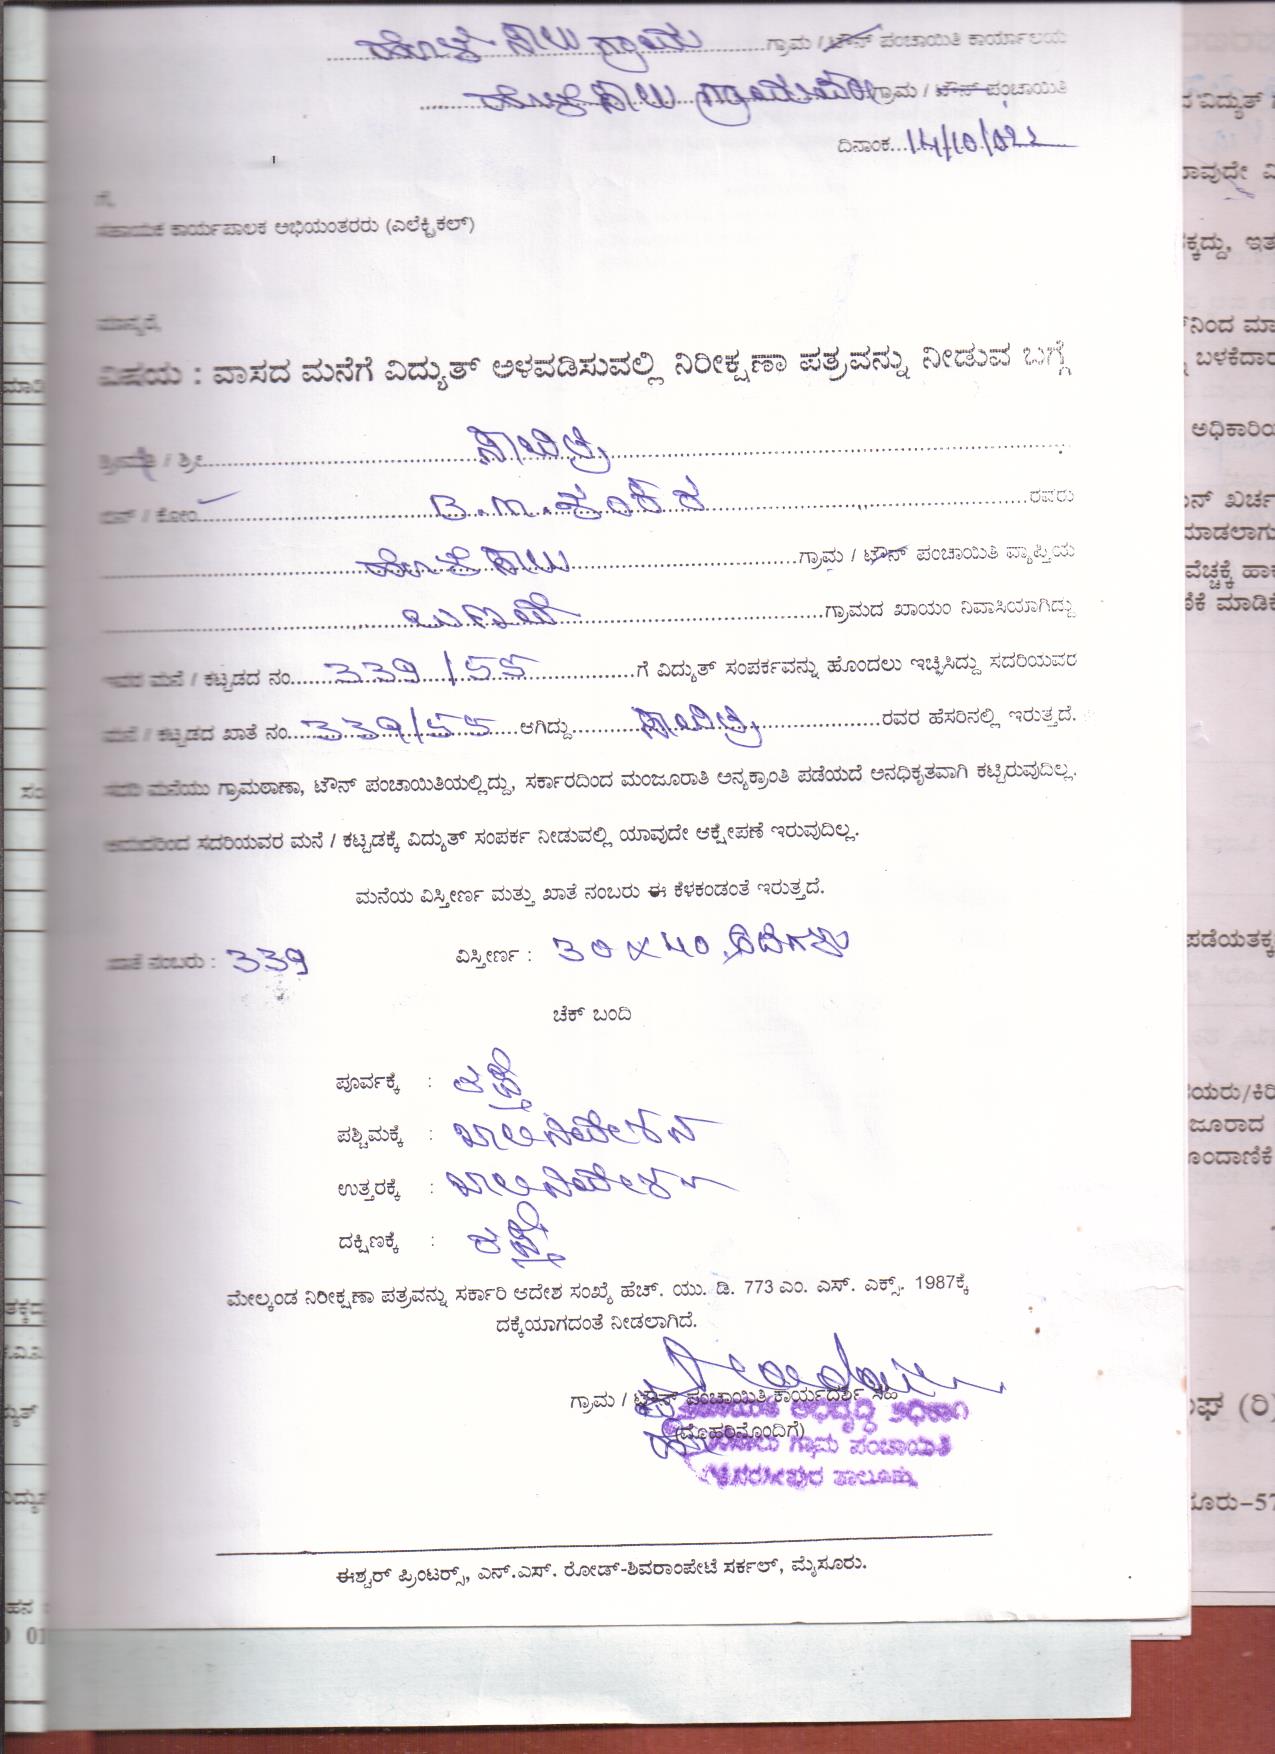 ಗ್ರಾಮ / ಟೌನ್ ಪಂಚಾಯಿತಿ ಕಾರ್ಯಾಲಯ
ಗ್ರಾಮ / ಟೌನ್ ಪಂಚಾಯಿತಿ
ದಿನಾಂಕ...14/10/022
ಗೆ,
ಸಹಾಯಕ ಕಾರ್ಯಪಾಲಕ ಅಭಿಯಂತರರು (ಎಲೆಕ್ಟ್ರಿಕಲ್)
ಮಾನ್ಯರೆ,
ವಿಷಯ : ವಾಸದ ಮನೆಗೆ ವಿದ್ಯುತ್ ಅಳವಡಿಸುವಲ್ಲಿ ನಿರೀಕ್ಷಣಾ ಪತ್ರವನ್ನು ನೀಡುವ ಬಗ್ಗೆ
ಶ್ರೀಮತಿ / ಶ್ರೀ ಸಾವಿತ್ರಿ
ಬಿನ್ / ಕೋಂ B.M. ಶಂಕರ ರವರು
ಗ್ರಾಮ / ಟೌನ್ ಪಂಚಾಯಿತಿ ವ್ಯಾಪ್ತಿಯ
ಗ್ರಾಮದ ಖಾಯಂ ನಿವಾಸಿಯಾಗಿದ್ದು
ಇವರ ಮನೆ / ಕಟ್ಟಡದ ನಂ. 339/55 ಗೆ ವಿದ್ಯುತ್ ಸಂಪರ್ಕವನ್ನು ಹೊಂದಲು ಇಚ್ಛಿಸಿದ್ದು ಸದರಿಯವರ
ಮನೆ / ಕಟ್ಟಡದ ಖಾತೆ ನಂ. 339/55 ಆಗಿದ್ದು ಸಾವಿತ್ರಿ ರವರ ಹೆಸರಿನಲ್ಲಿ ಇರುತ್ತದೆ.
ಸದರಿ ಮನೆಯು ಗ್ರಾಮಠಾಣಾ, ಟೌನ್ ಪಂಚಾಯಿತಿಯಲ್ಲಿದ್ದು, ಸರ್ಕಾರದಿಂದ ಮಂಜೂರಾತಿ ಅನ್ಯಕ್ರಾಂತಿ ಪಡೆಯದೆ ಅನಧಿಕೃತವಾಗಿ ಕಟ್ಟಿರುವುದಿಲ್ಲ.
ಆದುದರಿಂದ ಸದರಿಯವರ ಮನೆ / ಕಟ್ಟಡಕ್ಕೆ ವಿದ್ಯುತ್ ಸಂಪರ್ಕ ನೀಡುವಲ್ಲಿ ಯಾವುದೇ ಆಕ್ಷೇಪಣೆ ಇರುವುದಿಲ್ಲ.
ಮನೆಯ ವಿಸ್ತೀರ್ಣ ಮತ್ತು ಖಾತೆ ನಂಬರು ಈ ಕೆಳಕಂಡಂತೆ ಇರುತ್ತದೆ.
ಖಾತೆ ನಂಬರು : 339 ವಿಸ್ತೀರ್ಣ : 30 x 40 ಅಡಿಗಳು
ಚೆಕ್ ಬಂದಿ
ಪೂರ್ವಕ್ಕೆ : ರಸ್ತೆ
ಪಶ್ಚಿಮಕ್ಕೆ : ಖಾಲಿನಿವೇಶನ
ಉತ್ತರಕ್ಕೆ : ಖಾಲಿನಿವೇಶನ
ದಕ್ಷಿಣಕ್ಕೆ : ರಸ್ತೆ
ಮೇಲ್ಕಂಡ ನಿರೀಕ್ಷಣಾ ಪತ್ರವನ್ನು ಸರ್ಕಾರಿ ಆದೇಶ ಸಂಖ್ಯೆ ಹೆಚ್. ಯು. ಡಿ. 773 ಎಂ. ಎಸ್. ಎಕ್ಸ್. 1987ಕ್ಕೆ
ದಕ್ಕೆಯಾಗದಂತೆ ನೀಡಲಾಗಿದೆ.
ಗ್ರಾಮ / ಟೌನ್ ಪಂಚಾಯಿತಿ ಕಾರ್ಯದರ್ಶಿ ಸಹಿ
(ಮೊಹರಿನೊಂದಿಗೆ)
ಅಭಿವೃದ್ಧಿ ಅಧಿಕಾರಿ
ಗ್ರಾಮ ಪಂಚಾಯಿತಿ
ತಾಲ್ಲೂಕು
ಈಶ್ವರ್ ಪ್ರಿಂಟರ್ಸ್, ಎನ್.ಎಸ್. ರೋಡ್-ಶಿವರಾಂಪೇಟೆ ಸರ್ಕಲ್, ಮೈಸೂರು.